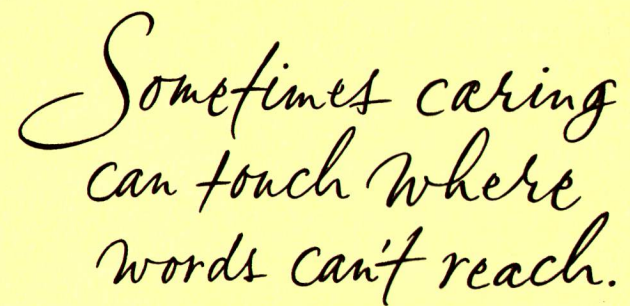 Sometimes caring
can touch where
words can't reach.